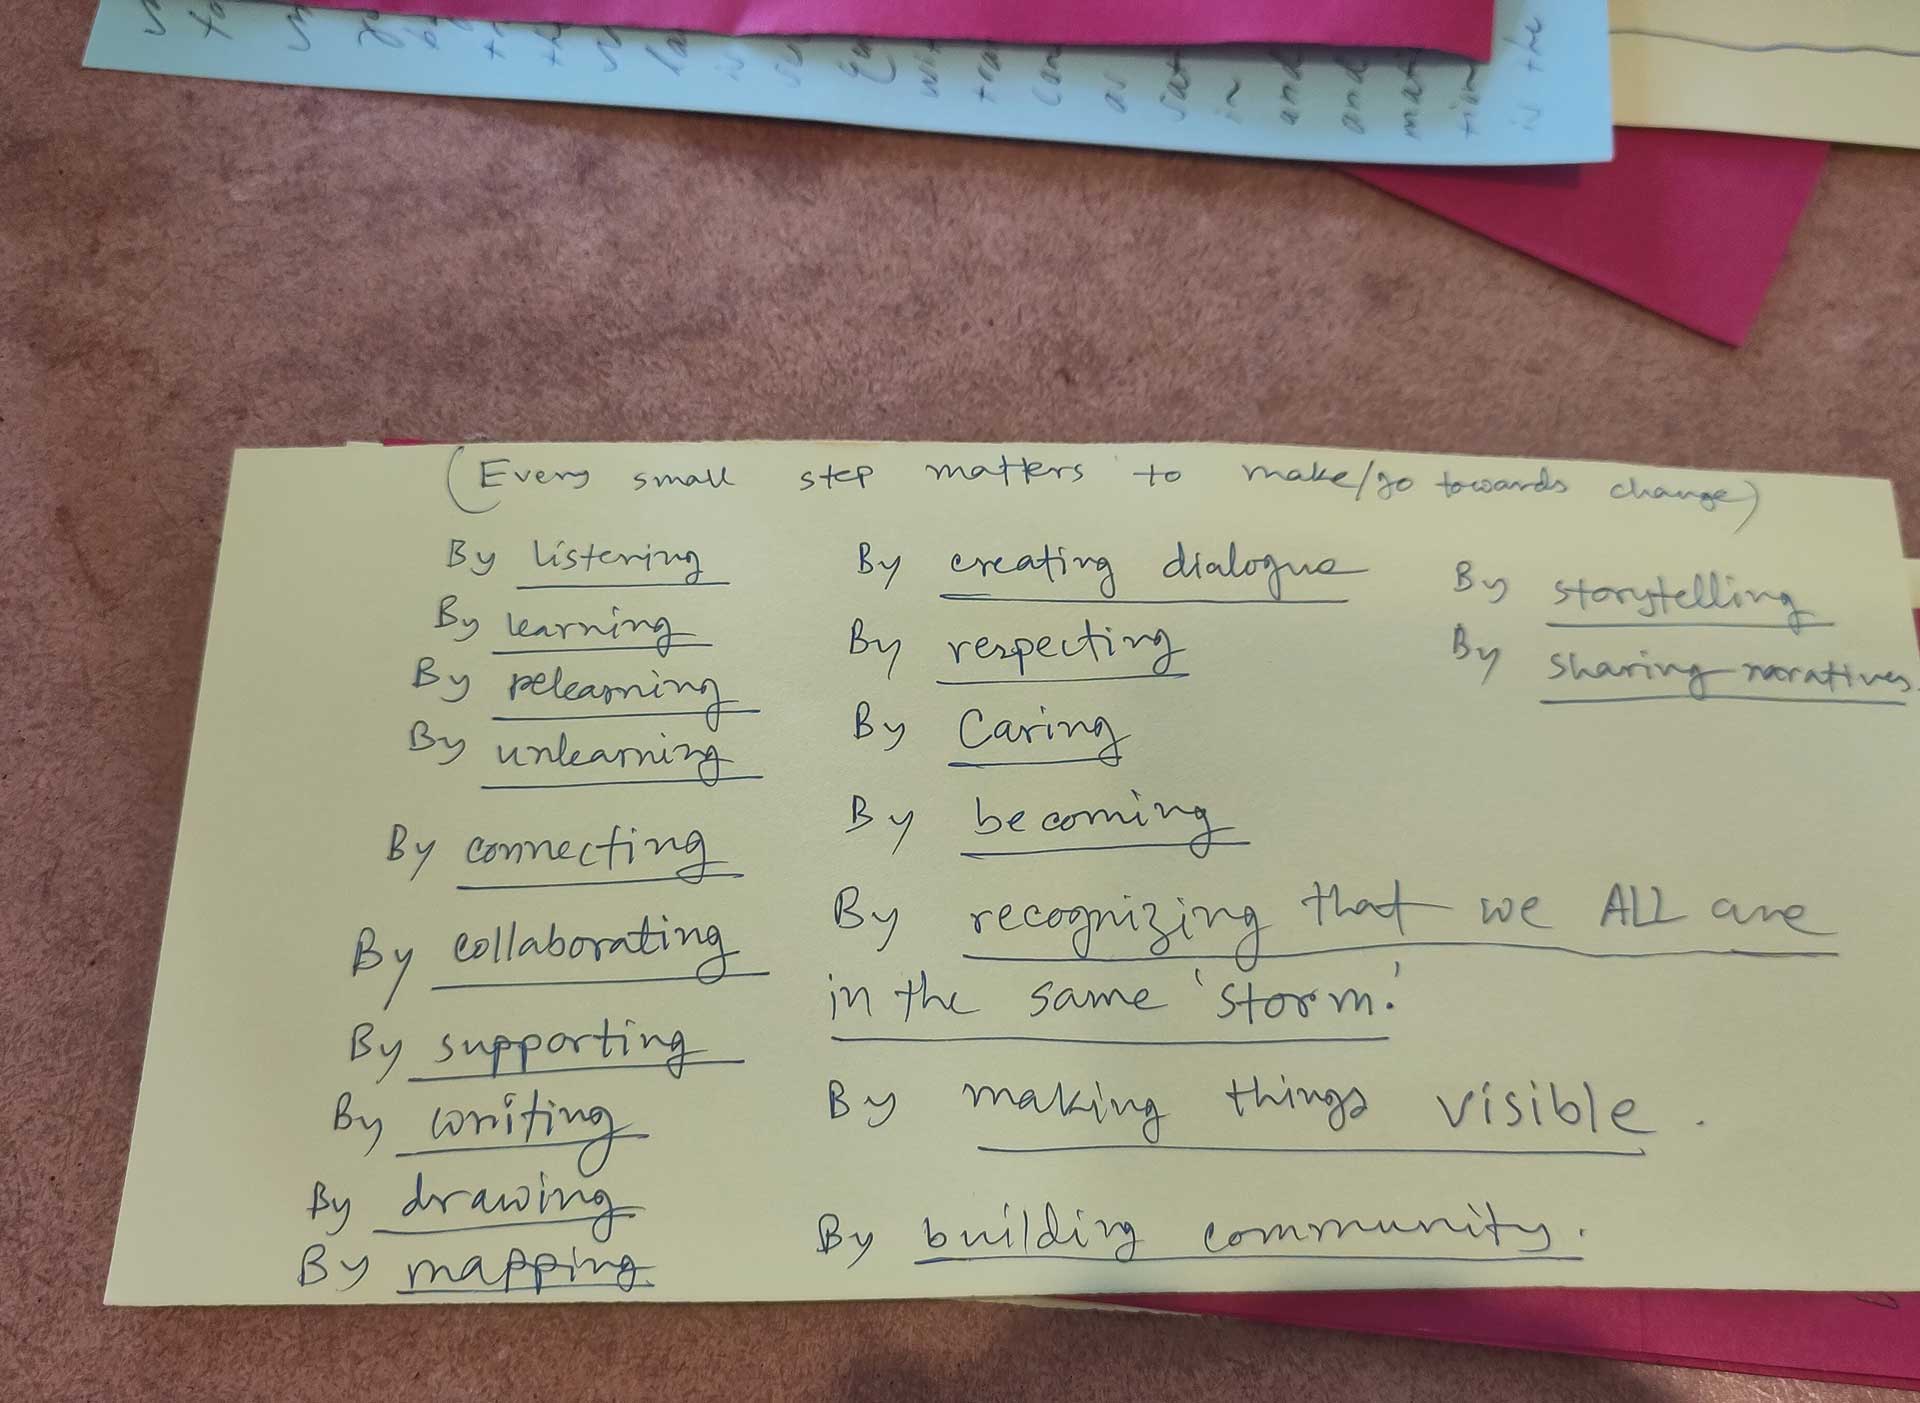 (Every small step matters to make/go towards change)
By listening
By learning
By relearning
By unlearning
By connecting
By collaborating
By supporting
By writing
By drawing
By mapping.
By creating dialogue
By respecting
By Caring
By becoming
By recognizing that we ALL are
in the same 'storm.'
By making things visible.
By building community.
By storytelling
By sharing naratives.
is the
tion
mati
and
and
in
sat
as
con
tra
wit